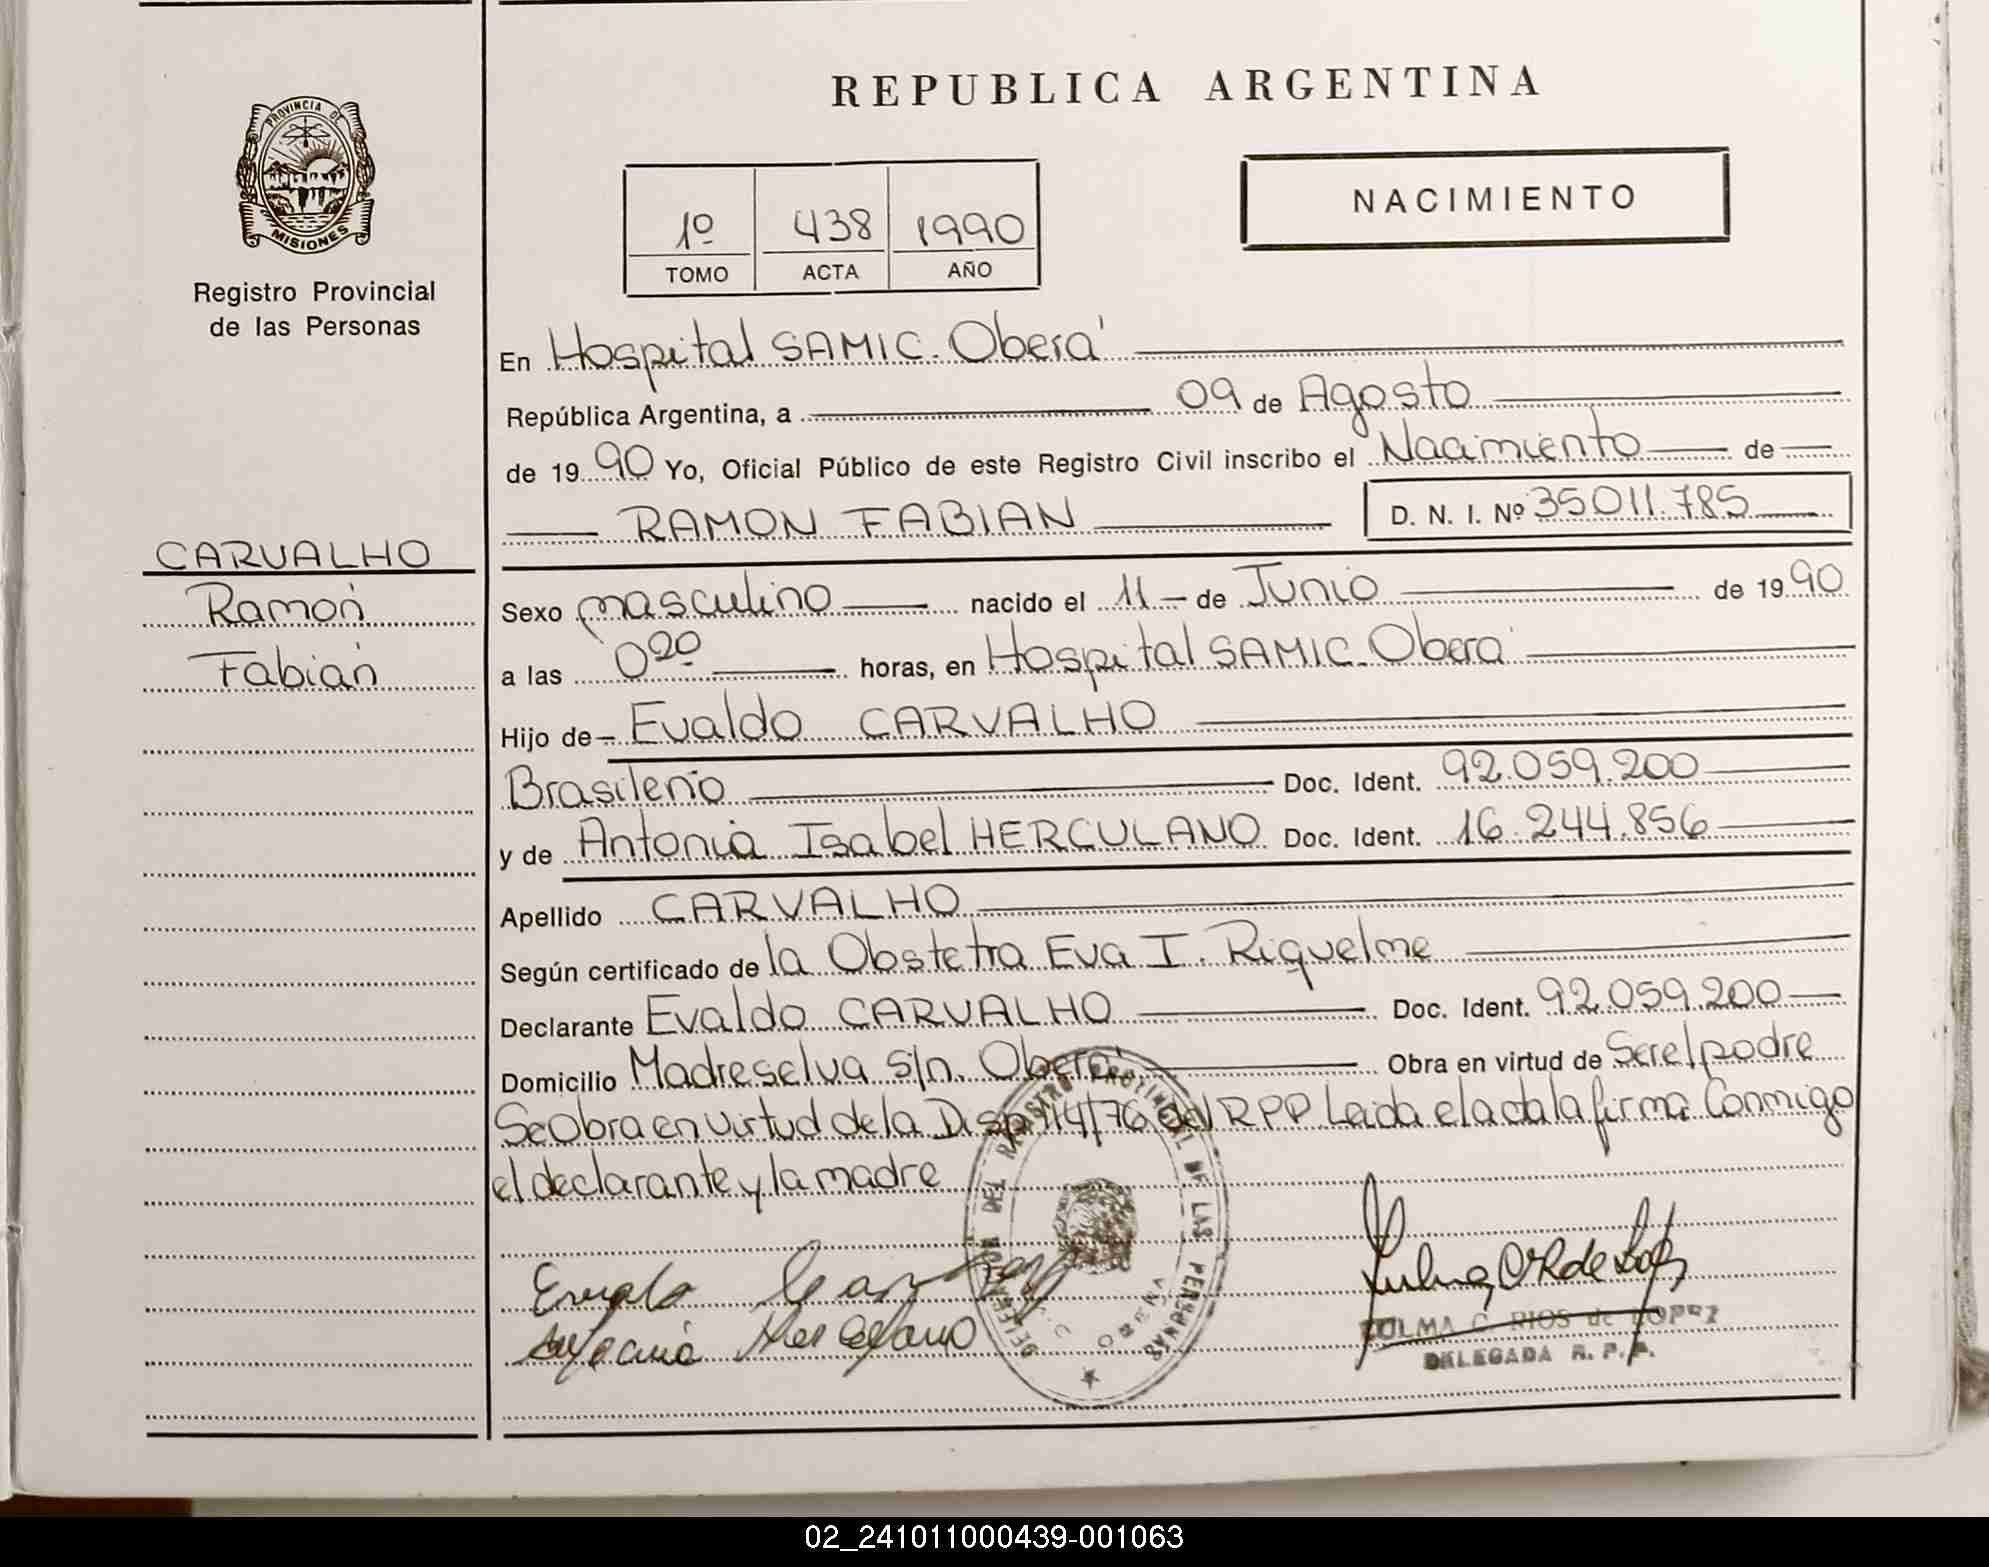 REPUBLICA ARGENTINA
PROVINCIA DE
MISIONES
Registro Provincial
de las Personas
NACIMIENTO
1º 438 1990
TOMO ACTA AÑO
En Hospital SAMIC. Oberá
República Argentina, a 09 de Agosto
de 19 90 Yo, Oficial Público de este Registro Civil inscribo el Nacimiento de
RAMON FABIAN D. N. I. Nº 35011.785
CARVALHO
Ramón
Fabián
Sexo masculino nacido el 11 de Junio de 19 90
a las 0 20 horas, en Hospital SAMIC. Oberá
Hijo de Evaldo CARVALHO
Brasileño Doc. Ident. 92.059.200
y de Antonia Isabel HERCULANO Doc. Ident. 16.244.856
Apellido CARVALHO
Según certificado de la Obstetra Eva I. Riquelme
Declarante Evaldo CARVALHO Doc. Ident. 92.059.200
Domicilio Madreselva s/n. Oberá Obra en virtud de Ser el padre
Se Obra en virtud de la Disp 114/76 del RPP Leida el acta la firma Conmigo
el declarante y la madre
DEL REGISTRO PROVINCIAL DE LAS PERSONAS
Herculano
ZULMA C. RIOS de LOPEZ
DELEGADA R. P. P.
02_241011000439-001063